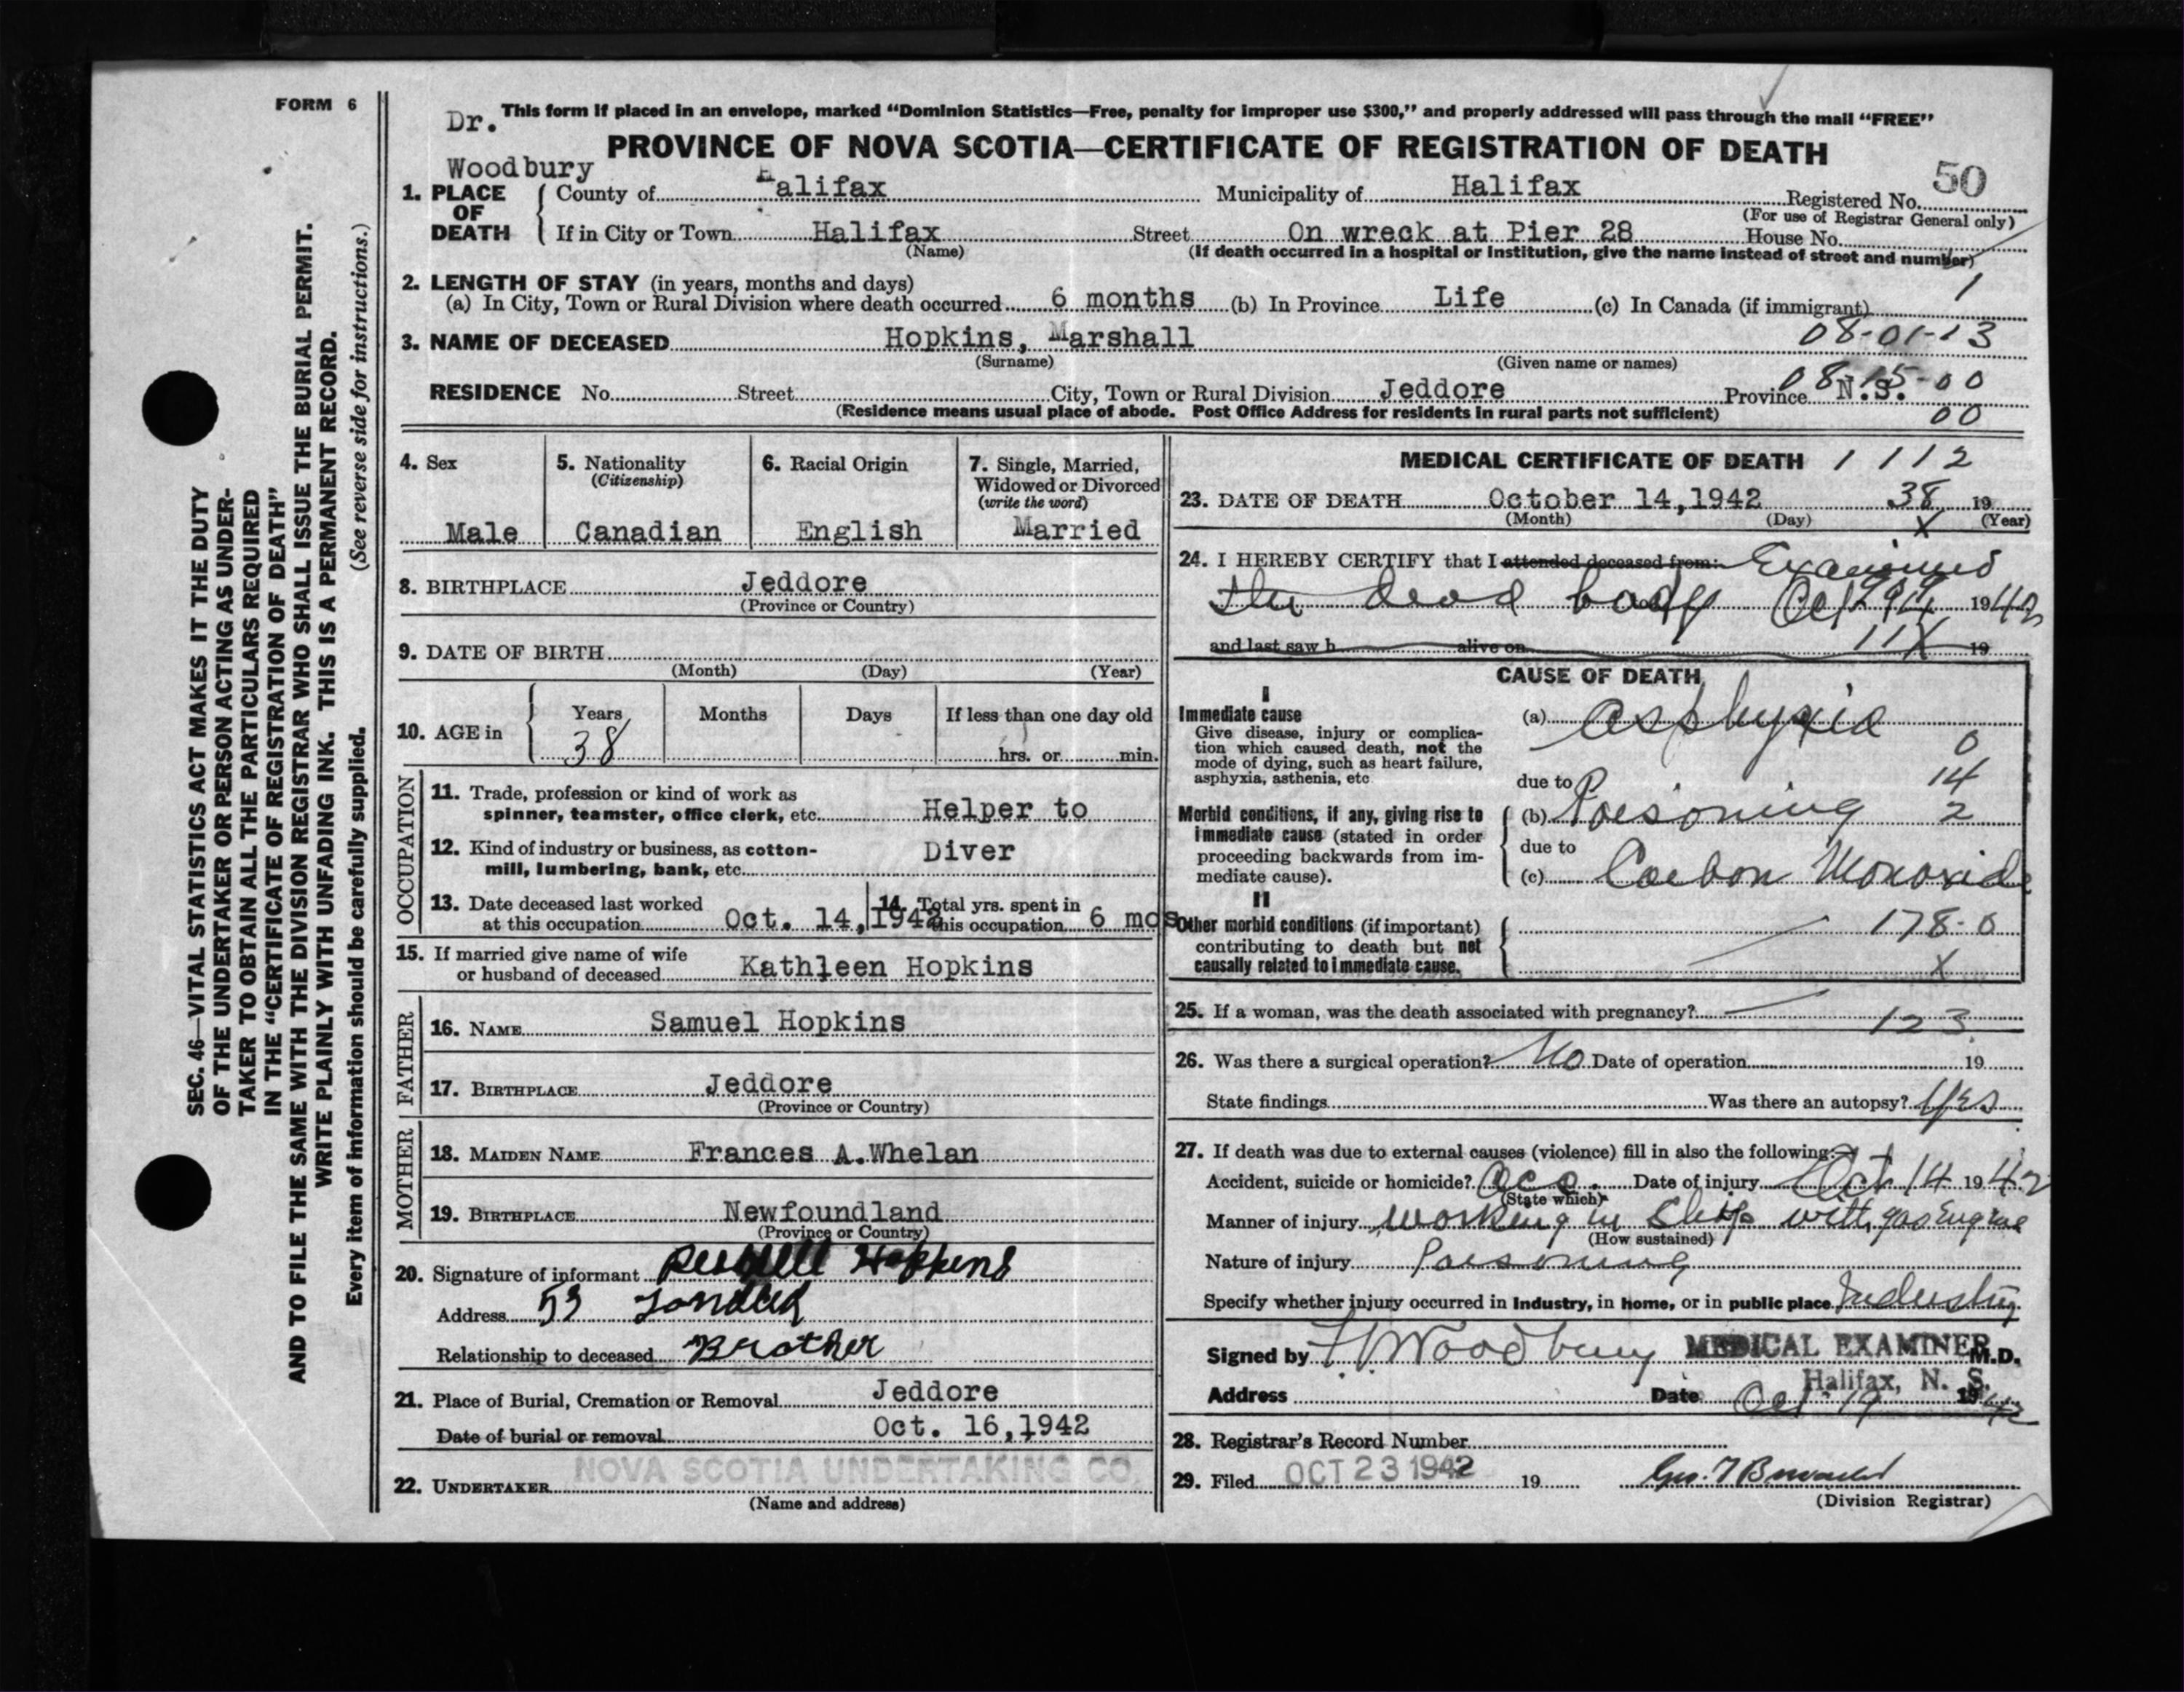 FORM 6
SEC. 46—VITAL STATISTICS ACT MAKES IT THE DUTY
OF THE UNDERTAKER OR PERSON ACTING AS UNDER-
TAKER TO OBTAIN ALL THE PARTICULARS REQUIRED
IN THE "CERTIFICATE OF REGISTRATION OF DEATH"
AND TO FILE THE SAME WITH THE DIVISION REGISTRAR WHO SHALL ISSUE THE BURIAL PERMIT.
WRITE PLAINLY WITH UNFADING INK. THIS IS A PERMANENT RECORD.
Every item of information should be carefully supplied. (See reverse side for instructions.)
This form if placed in an envelope, marked "Dominion Statistics—Free, penalty for improper use $300," and properly addressed will pass through the mail "FREE"
Dr.
Woodbury
PROVINCE OF NOVA SCOTIA—CERTIFICATE OF REGISTRATION OF DEATH
50
1. PLACE OF DEATH
County of Halifax Municipality of Halifax Registered No.
(For use of Registrar General only)
If in City or Town Halifax Street On wreck at Pier 28 House No.
(Name) (If death occurred in a hospital or institution, give the name instead of street and number)
2. LENGTH OF STAY (in years, months and days)
(a) In City, Town or Rural Division where death occurred 6 months (b) In Province Life (c) In Canada (if immigrant) 1
3. NAME OF DECEASED Hopkins, Marshall 08-01-13
(Surname) (Given name or names)
08-15-00
RESIDENCE No. Street City, Town or Rural Division Jeddore Province N.S.
(Residence means usual place of abode. Post Office Address for residents in rural parts not sufficient) 00
4. Sex
Male
5. Nationality
(Citizenship)
Canadian
6. Racial Origin
English
7. Single, Married,
Widowed or Divorced
(write the word)
Married
8. BIRTHPLACE Jeddore
(Province or Country)
9. DATE OF BIRTH
(Month) (Day) (Year)
10. AGE in Years Months Days If less than one day old
38 hrs. or min.
OCCUPATION
11. Trade, profession or kind of work as
spinner, teamster, office clerk, etc. Helper to
12. Kind of industry or business, as cotton-
mill, lumbering, bank, etc. Diver
13. Date deceased last worked
at this occupation Oct. 14, 1942
14. Total yrs. spent in
this occupation 6 mos
15. If married give name of wife
or husband of deceased Kathleen Hopkins
FATHER
16. NAME Samuel Hopkins
17. BIRTHPLACE Jeddore
(Province or Country)
MOTHER
18. MAIDEN NAME Frances A.Whelan
19. BIRTHPLACE Newfoundland
(Province or Country)
20. Signature of informant Hopkins
Address 53
Relationship to deceased Brother
21. Place of Burial, Cremation or Removal Jeddore
Date of burial or removal Oct. 16,1942
22. UNDERTAKER NOVA SCOTIA UNDERTAKING CO.
(Name and address)
MEDICAL CERTIFICATE OF DEATH 1112
23. DATE OF DEATH October 14,1942 38 19
(Month) (Day) X (Year)
24. I HEREBY CERTIFY that I attended deceased from: Examined
the dead body Oct 1942
and last saw h alive on 11X 19
CAUSE OF DEATH
I
Immediate cause
Give disease, injury or complica-
tion which caused death, not the
mode of dying, such as heart failure,
asphyxia, asthenia, etc
(a) Asphyxia
0
due to 14
Morbid conditions, if any, giving rise to
immediate cause (stated in order
proceeding backwards from im-
mediate cause).
(b) Poisoning 2
due to
(c) Carbon Monoxide
II
Other morbid conditions (if important)
contributing to death but not
causally related to immediate cause.
178-0
X
25. If a woman, was the death associated with pregnancy? 123
26. Was there a surgical operation? No Date of operation 19
State findings Was there an autopsy? Yes
27. If death was due to external causes (violence) fill in also the following:
Accident, suicide or homicide? Acc. Date of injury Oct 14 1942
(State which)
Manner of injury working in ship with gas Engine
(How sustained)
Nature of injury Poisoning
Specify whether injury occurred in Industry, in home, or in public place Industry
Signed by Woodbury MEDICAL EXAMINER M.D.
Halifax, N. S.
Address Date Oct 19 1942
28. Registrar's Record Number
29. Filed OCT 23 1942 19
(Division Registrar)